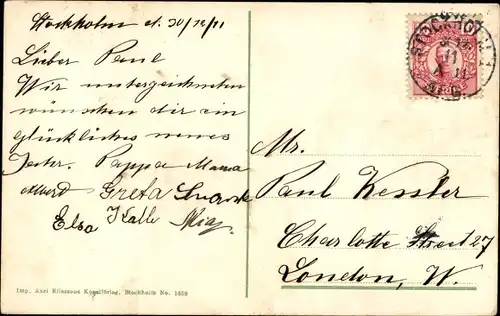 Stockholm d. 30/12/11
Lieber Paul
Wir unterzeichneten
wünschen dir ein
glückliches neues
Jahr. Pappa Mama
Greta
Elsa Kalle
Mr.
Paul Kessler
Charlotte Street 27
London, W.
Imp. Axel Eliassons Konstförlag, Stockholm No. 1659
STOCKHOLM 1
11